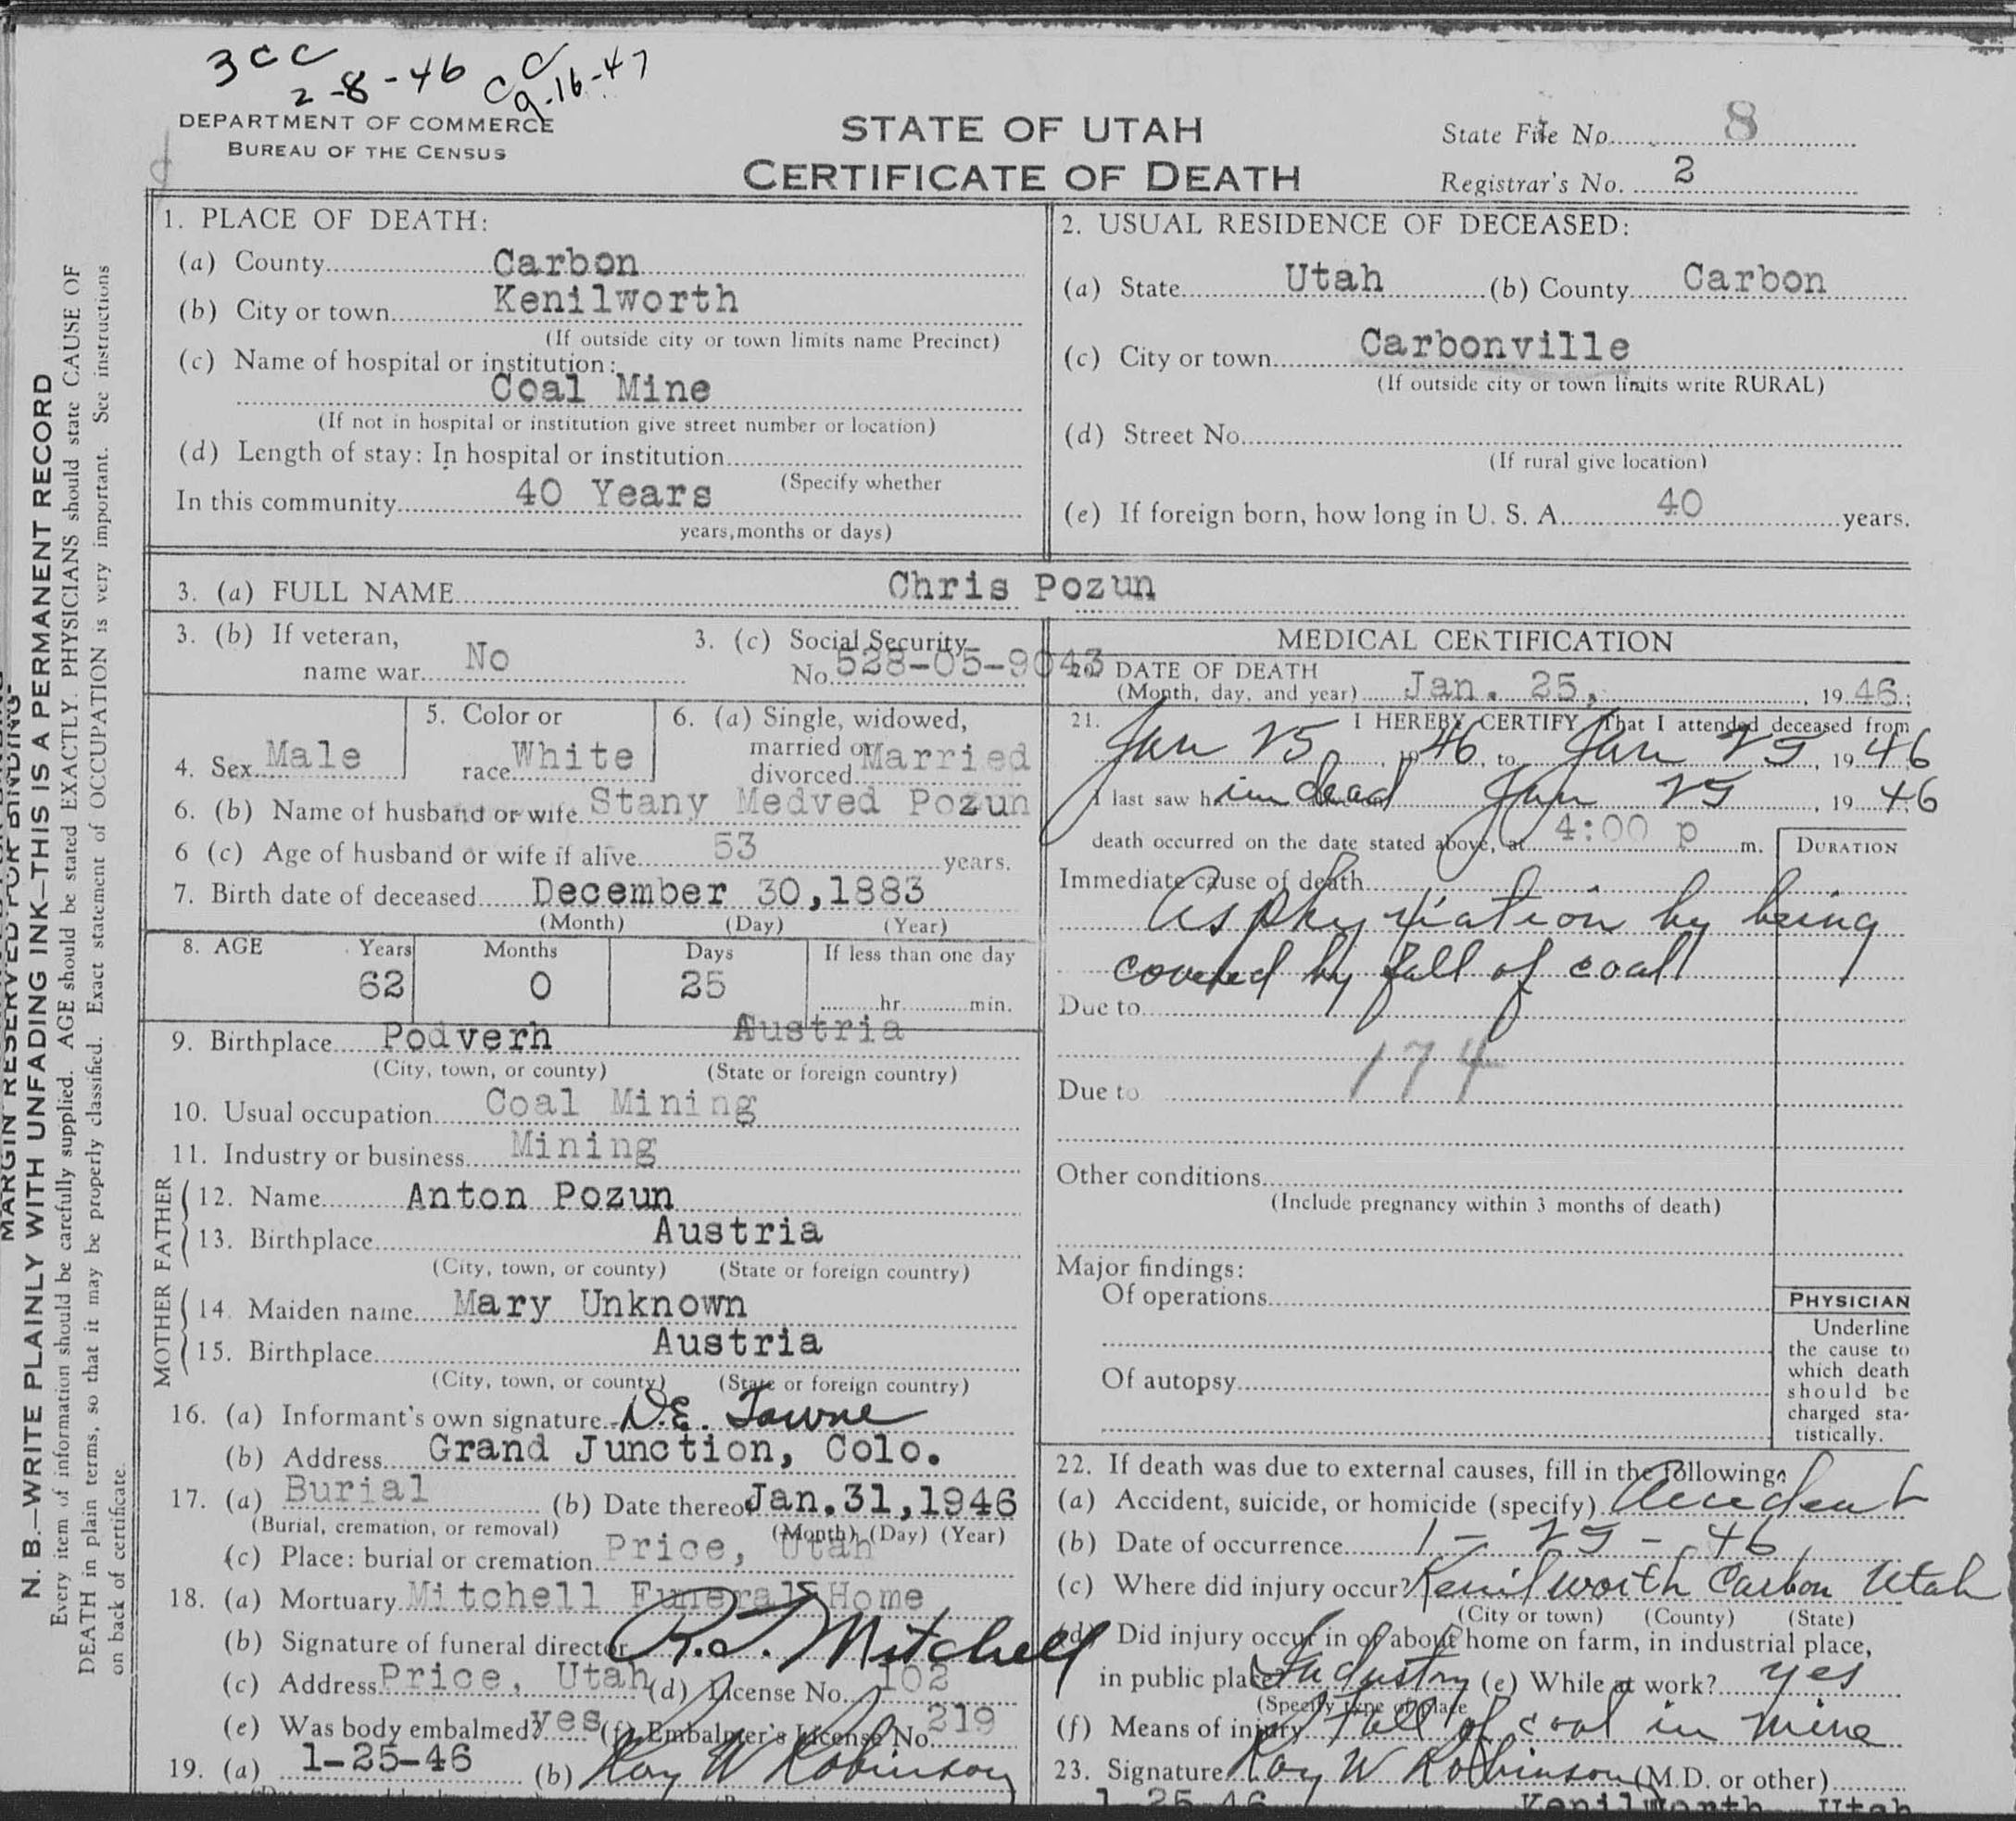 3 c c
2-8-46
c c
9-16-47
DEPARTMENT OF COMMERCE
BUREAU OF THE CENSUS
STATE OF UTAH
CERTIFICATE OF DEATH
State File No. 8
Registrar's No. 2
MARGIN RESERVED FOR BINDING
N. B.—WRITE PLAINLY WITH UNFADING INK—THIS IS A PERMANENT RECORD
Every item of information should be carefully supplied. AGE should be stated EXACTLY. PHYSICIANS should state CAUSE OF
DEATH in plain terms, so that it may be properly classified. Exact statement of OCCUPATION is very important. See instructions
on back of certificate.
1. PLACE OF DEATH:
(a) County Carbon
(b) City or town Kenilworth
(If outside city or town limits name Precinct)
(c) Name of hospital or institution:
Coal Mine
(If not in hospital or institution give street number or location)
(d) Length of stay: In hospital or institution
(Specify whether
In this community 40 Years
years, months or days)
2. USUAL RESIDENCE OF DECEASED:
(a) State Utah (b) County Carbon
(c) City or town Carbonville
(If outside city or town limits write RURAL)
(d) Street No.
(If rural give location)
(e) If foreign born, how long in U. S. A. 40 years.
3. (a) FULL NAME Chris Pozun
3. (b) If veteran,
name war No
3. (c) Social Security
No. 528-05-9043
4. Sex Male
5. Color or
race White
6. (a) Single, widowed,
married or
divorced Married
6. (b) Name of husband or wife Stany Medved Pozun
6 (c) Age of husband or wife if alive 53 years.
7. Birth date of deceased December 30,1883
(Month) (Day) (Year)
8. AGE Years Months Days If less than one day
62 0 25 hr. min.
9. Birthplace Podverh Austria
(City, town, or county) (State or foreign country)
10. Usual occupation Coal Mining
11. Industry or business Mining
FATHER
12. Name Anton Pozun
13. Birthplace Austria
(City, town, or county) (State or foreign country)
MOTHER
14. Maiden name Mary Unknown
15. Birthplace Austria
(City, town, or county) (State or foreign country)
16. (a) Informant's own signature D.E. Towne
(b) Address Grand Junction, Colo.
17. (a) Burial (b) Date thereof Jan.31,1946
(Burial, cremation, or removal) (Month) (Day) (Year)
(c) Place: burial or cremation Price, Utah
18. (a) Mortuary Mitchell Funeral Home
(b) Signature of funeral director R.J. Mitchell
(c) Address Price, Utah (d) License No. 102
(e) Was body embalmed? yes (f) Embalmer's License No. 219
19. (a) 1-25-46 (b) Roy W Robinson
MEDICAL CERTIFICATION
20. DATE OF DEATH
(Month, day, and year) Jan. 25, 1946
21. I HEREBY CERTIFY That I attended deceased from
Jan 25, 1946, to Jan 25, 1946
I last saw him dead Jan 25, 1946
death occurred on the date stated above, at 4:00 p m.
DURATION
Immediate cause of death
Asphyxiation by being
covered by fall of coal
Due to
174
Due to
Other conditions
(Include pregnancy within 3 months of death)
Major findings:
Of operations
Of autopsy
PHYSICIAN
Underline
the cause to
which death
should be
charged sta-
tistically.
22. If death was due to external causes, fill in the following:
(a) Accident, suicide, or homicide (specify) Accident
(b) Date of occurrence 1-25-46
(c) Where did injury occur? Kenilworth Carbon Utah
(City or town) (County) (State)
(d) Did injury occur in or about home on farm, in industrial place,
in public place? Industry (e) While at work? yes
(Specify type of place
(f) Means of injury Fall of coal in mine
23. Signature Roy W Robinson (M.D. or other)
1-25-46 Kenilworth Utah